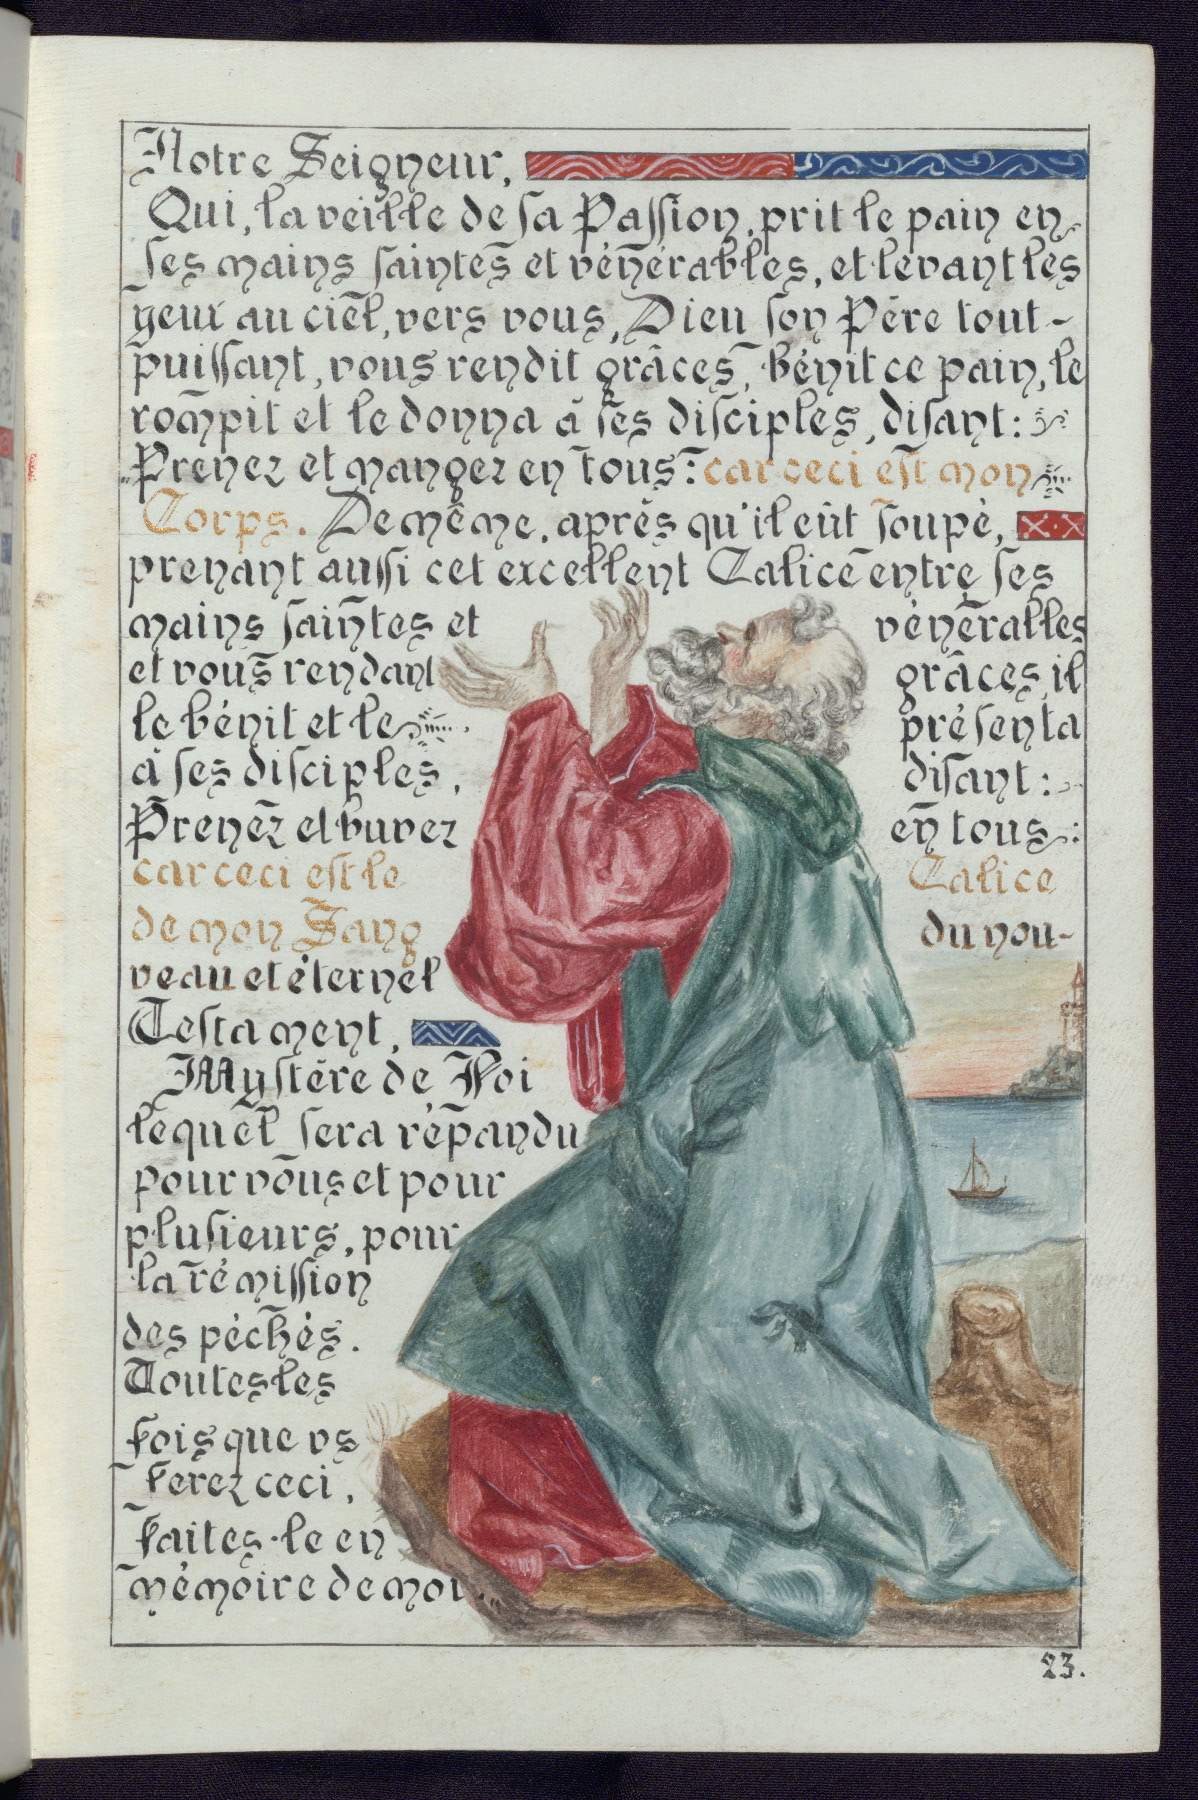 Notre Seigneur,
Qui, la veille de sa Passion, prit le pain en
ses mains saintes et vénérables, et levant les
yeux au ciel, vers vous, Dieu son Père tout-
puissant, vous rendit grâces, bénit ce pain, le
rompit et le donna à ses disciples, disant:
Prenez et mangez en tous: car ceci est mon
Corps. De même, après qu'il eût soupé,
prenant aussi cet excellent Calice entre ses
mains saintes et vénérables
et vous rendant grâces, il
le bénit et le présenta
à ses disciples, disant:
Prenez et buvez en tous:
car ceci est le Calice
de mon Sang du nou-
veau et éternel
Testament,
Mystère de Foi
lequel sera répandu
pour vous et pour
plusieurs, pour
la rémission
des péchés.
Toutes les
fois que vs
ferez ceci,
faites-le en
mémoire de moi.
23.